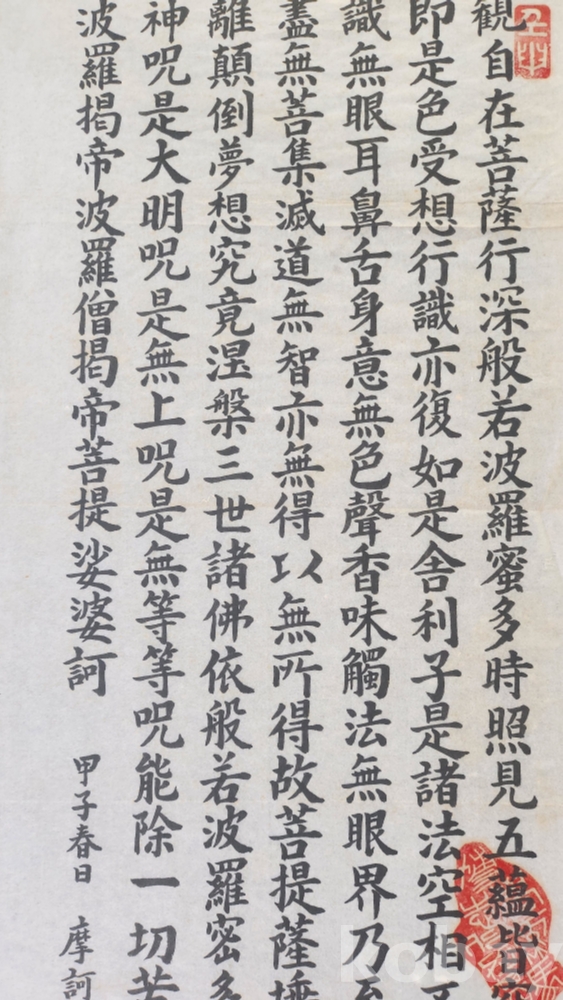 観自在菩薩行深般若波羅蜜多時照見五蘊皆空
即是色受想行識亦復如是舍利子是諸法空相不
識無眼耳鼻舌身意無色聲香味觸法無眼界乃至
盡無菩集滅道無智亦無得以無所得故菩提薩埵
離顛倒夢想究竟涅槃三世諸佛依般若波羅密多
神呪是大明呪是無上呪是無等等呪能除一切苦
波羅揭帝波羅僧揭帝菩提娑婆訶 甲子春日 摩訶